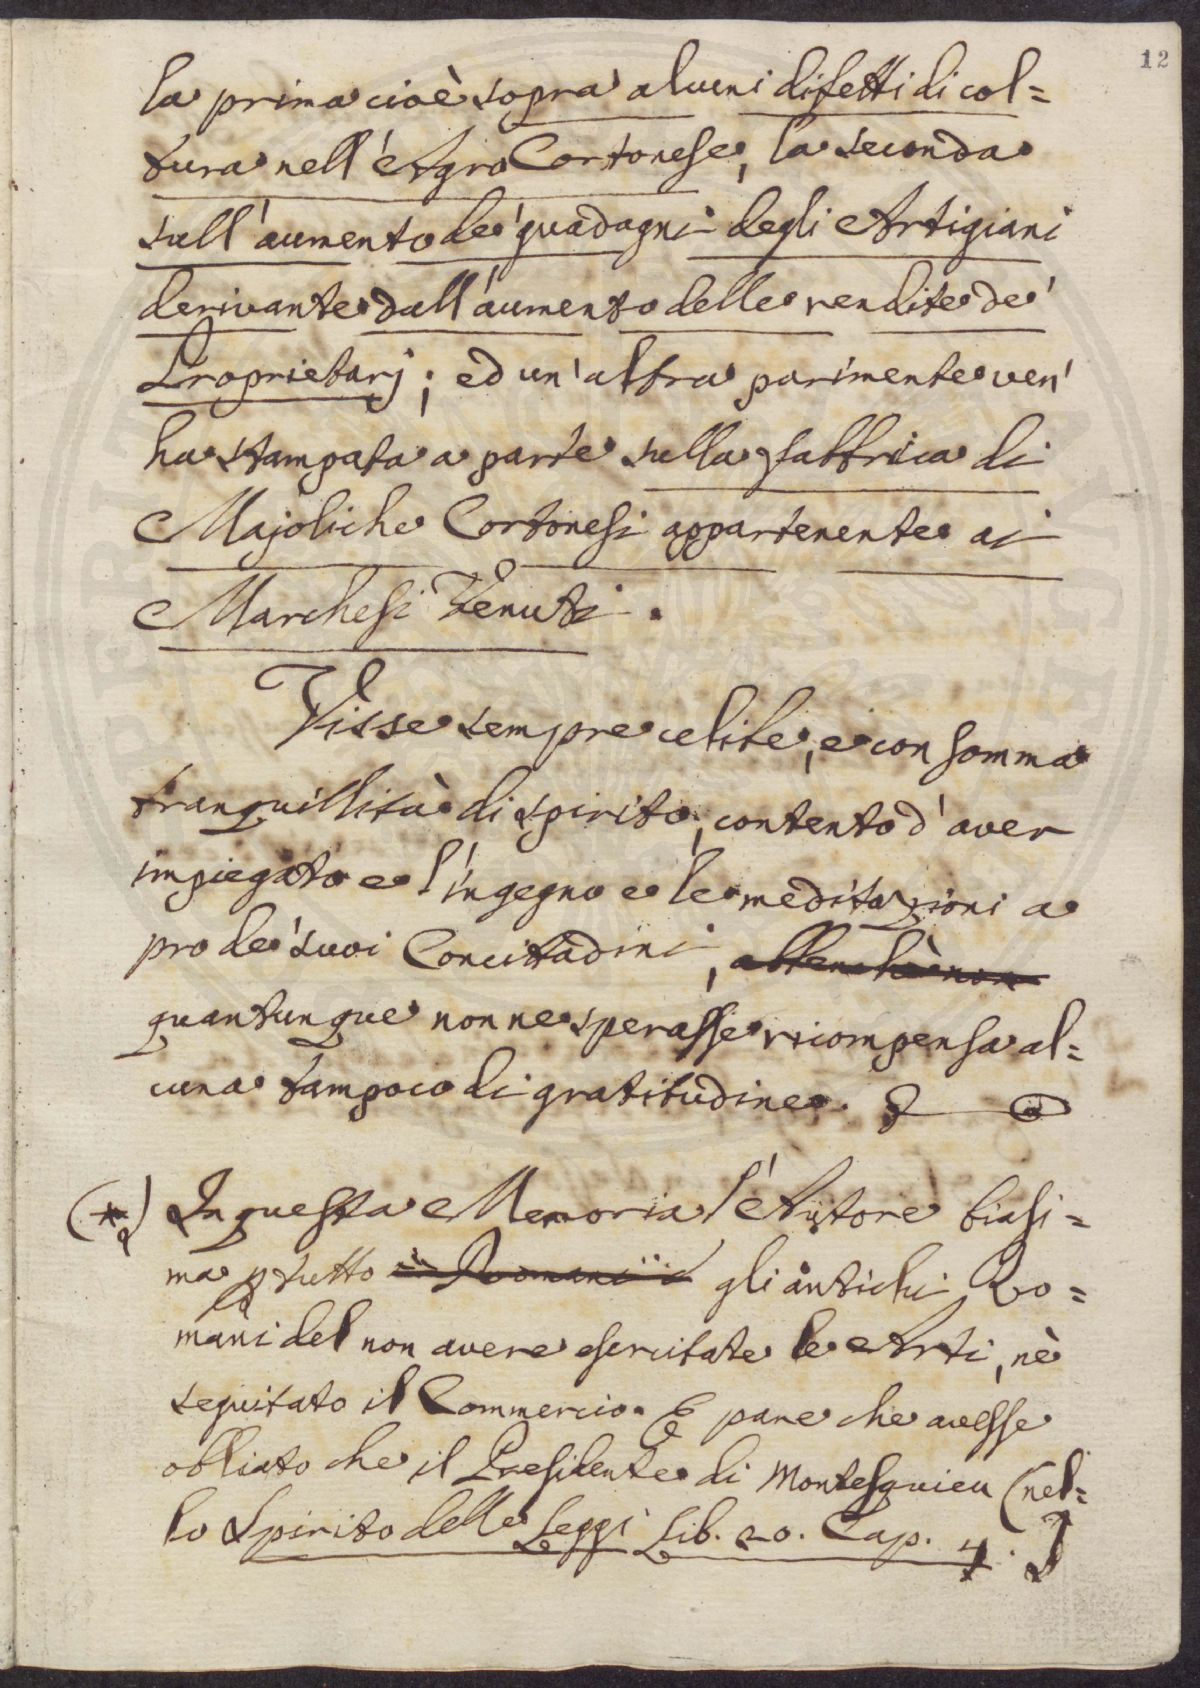 12
la prima cioè sopra alcuni difetti di col=
tura nell'Agro Cortonese, la seconda
sull'aumento de' guadagni degli Artigiani
derivante dall'aumento delle rendite de'
Proprietarj; ed un'altra parimente ven'
ha stampata a parte sulla fabbrica di
Majoliche Cortonesi appartenente ai
Marchesi Venuti.
Visse sempre celibe, e con somma
tranquillità di spirito, contento d'aver
impiegato e l'ingegno e le meditazioni a
pro de' suoi Concittadini, abbenchè non
quantunque non ne sperasse ricompensa al=
cuna tampoco di gratitudine.
(*) In questa Memoria l'Autore biasi=
ma p tutto i Romani gli antichi Ro=
mani del non avere esercitate le Arti, nè
seguitato il Commercio. E pare che avesse
obliato che il Presidente di Montesquieu (nel=
lo Spirito delle Leggi Lib. 20. Cap. 4.)